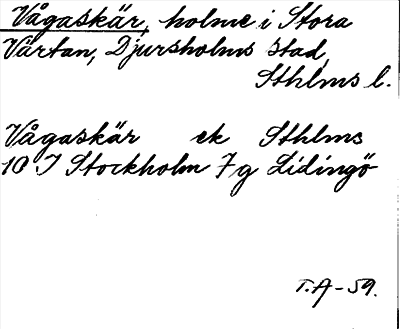 Vågaskär, holme i Stora
Värtan, Djursholms stad,
Sthlms l.
Vågaskär ek Sthlms
10 I Stockholm 7 g Lidingö
T.A-59.